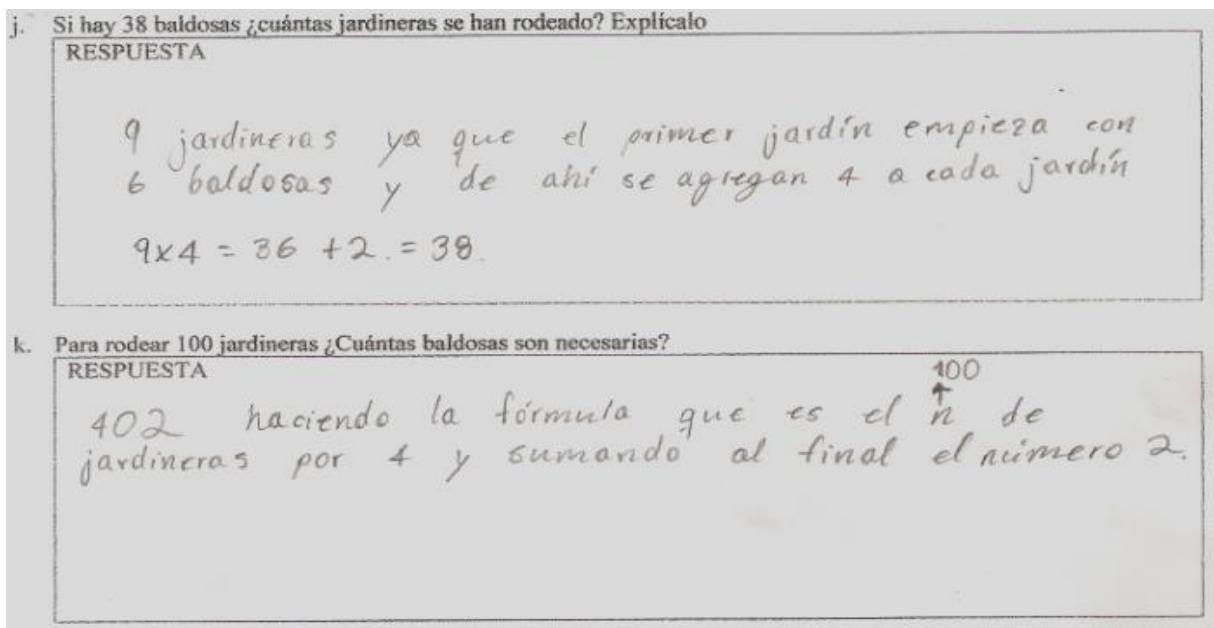 j. Si hay 38 baldosas ¿cuántas jardineras se han rodeado? Explícalo
RESPUESTA
9 jardineras ya que el primer jardín empieza con
6 baldosas y de ahí se agregan 4 a cada jardín
9x4 = 36 +2. = 38.
k. Para rodear 100 jardineras ¿Cuántas baldosas son necesarias?
RESPUESTA
100
↑
402 haciendo la fórmula que es el n de
jardineras por 4 y sumando al final el número 2.